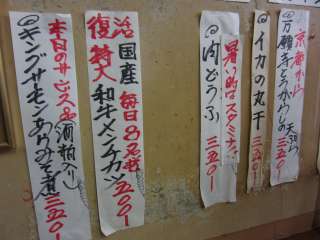 京都から
◎万願寺とうがらしの天ぷら
三五〇円
◎イカの丸干
三五〇円
暑い時はスタミナ
◎肉どうふ
三五〇円
復活 国産 毎日8名限
特大 和牛メンチカツ 五〇〇円
本日のサービス品(酒粕入り)
◎キングサーモンあらみそ煮
三五〇円